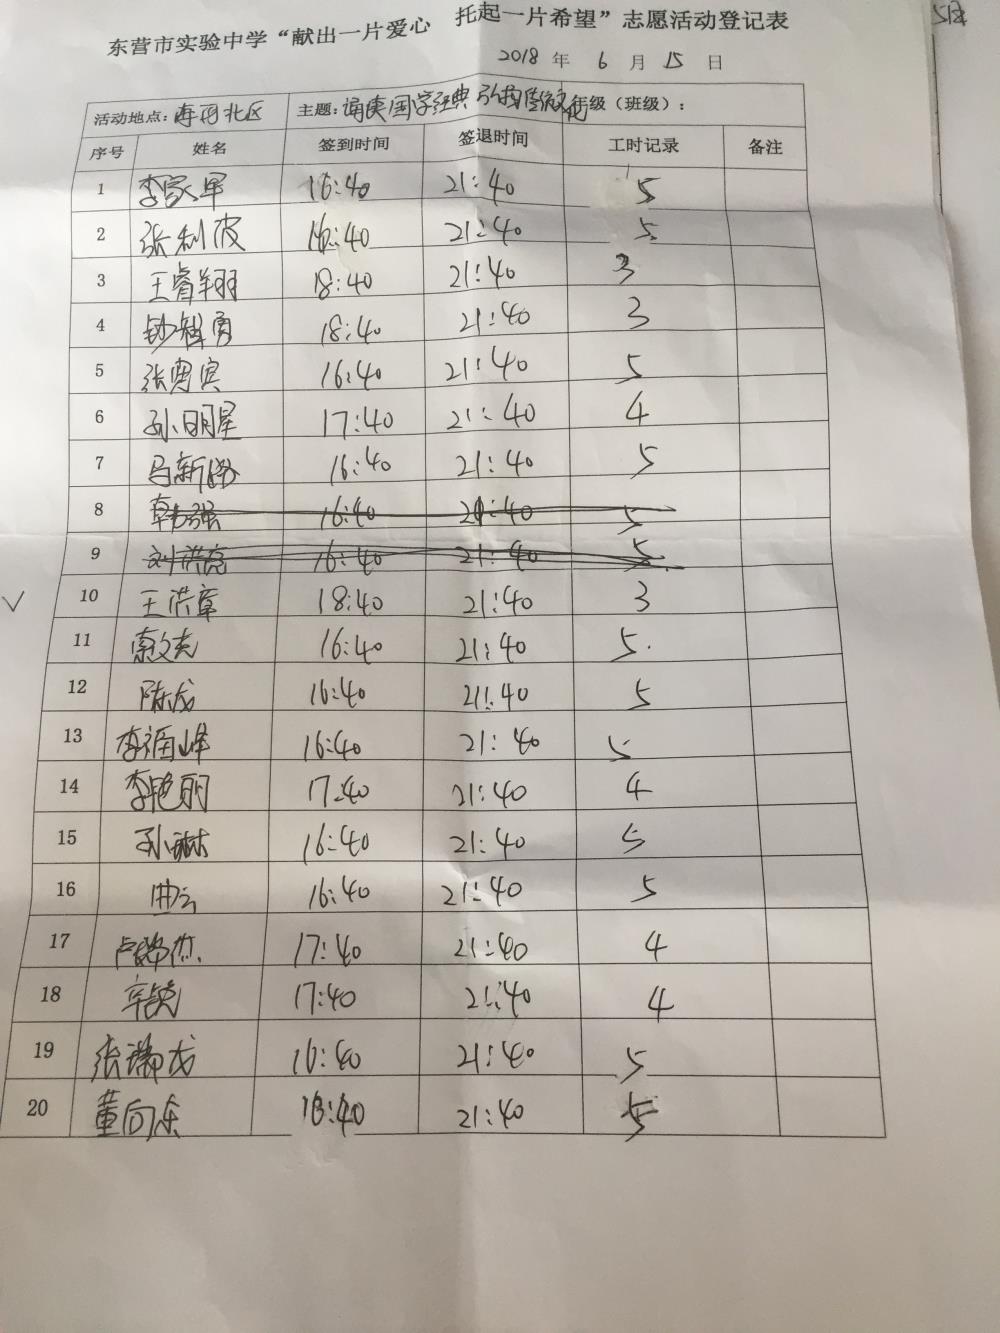 东营市实验中学“献出一片爱心 托起一片希望”志愿活动登记表
2018 年 6 月 15 日
活动地点: 北区 主题: 诵读国学经典 弘扬传统文化 年级(班级):
序号 姓名 签到时间 签退时间 工时记录 备注
1 李家军 16:40 21:40 5
2 张利波 16:40 21:40 5
3 王睿翔 18:40 21:40 3
4 18:40 21:40 3
5 张勇宾 16:40 21:40 5
6 孙明星 17:40 21:40 4
7 马新 16:40 21:40 5
8 韩强 16:40 21:40 5
9 刘洪亮 16:40 21:40 5
10 王洪章 18:40 21:40 3
11 索文夫 16:40 21:40 5.
12 陈龙 16:40 21:40 5
13 李福峰 16:40 21:40 5
14 李艳丽 17:40 21:40 4
15 孙琳 16:40 21:40 5
16 曲云 16:40 21:40 5
17 17:40 21:40 4
18 17:40 21:40 4
19 张瑞龙 16:40 21:40 5
20 董向东 16:40 21:40 5